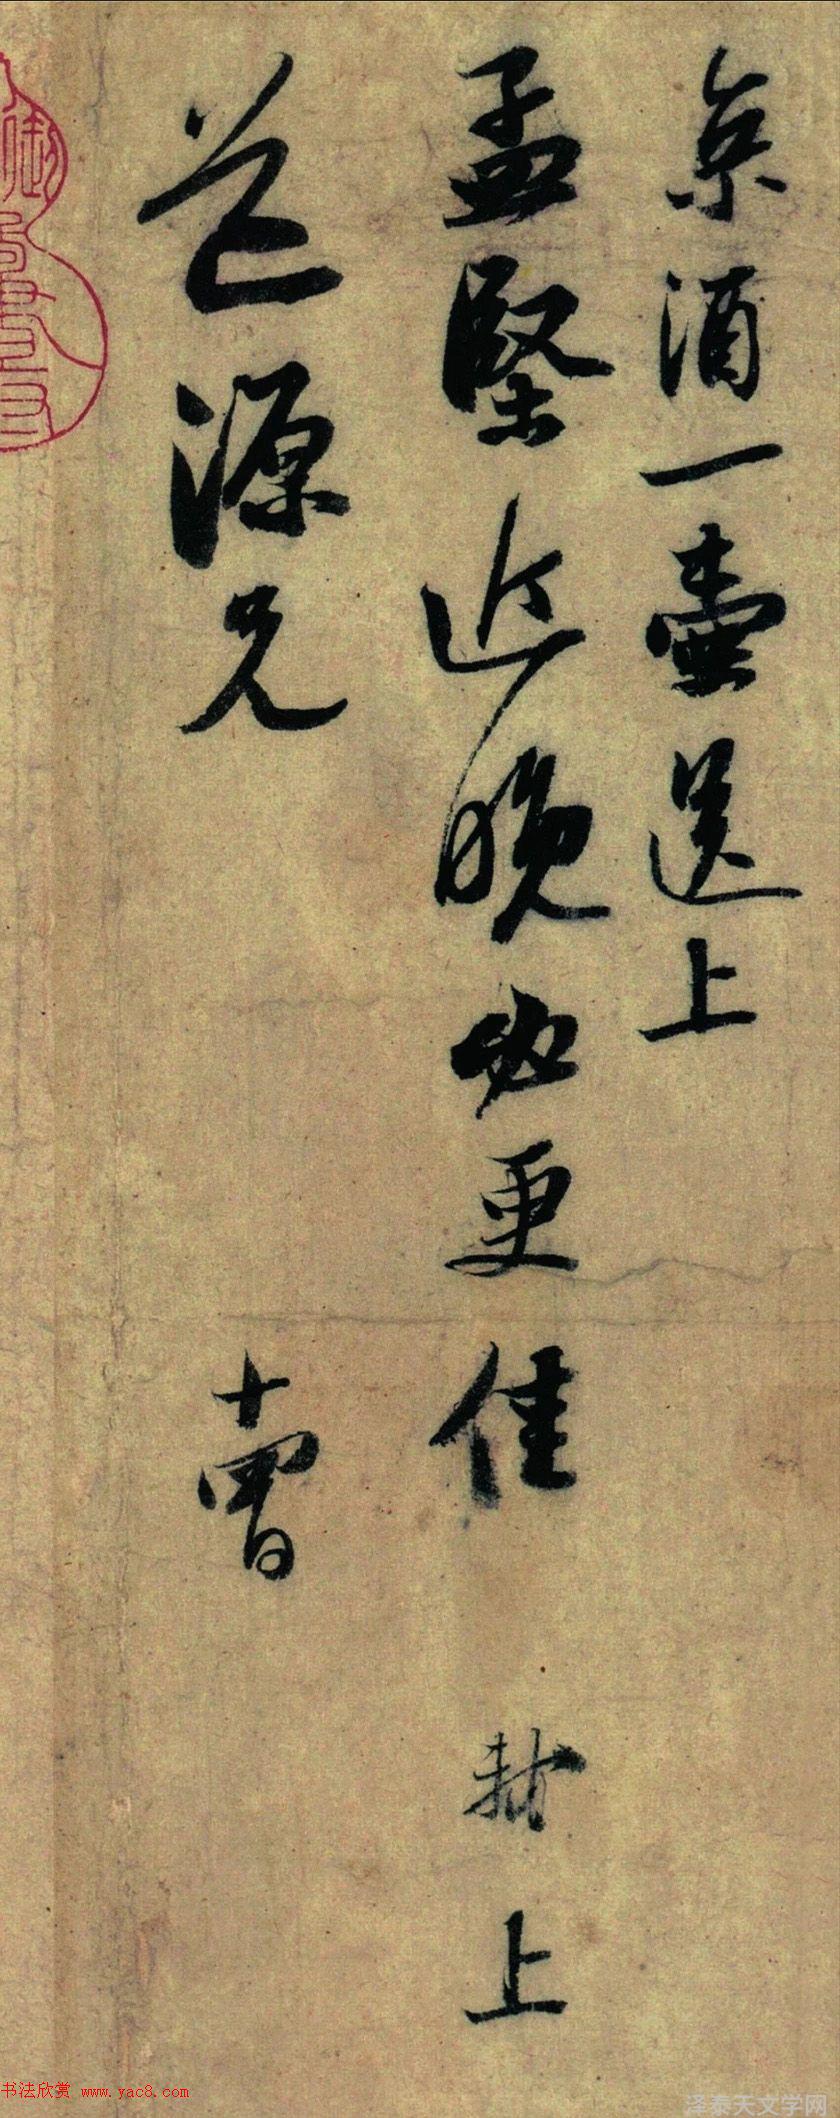 京酒一壺送上
孟堅近晚必更佳
軾上
道源兄
十四日
御書
书法欣赏 www.yac8.com
泽泰天文学网